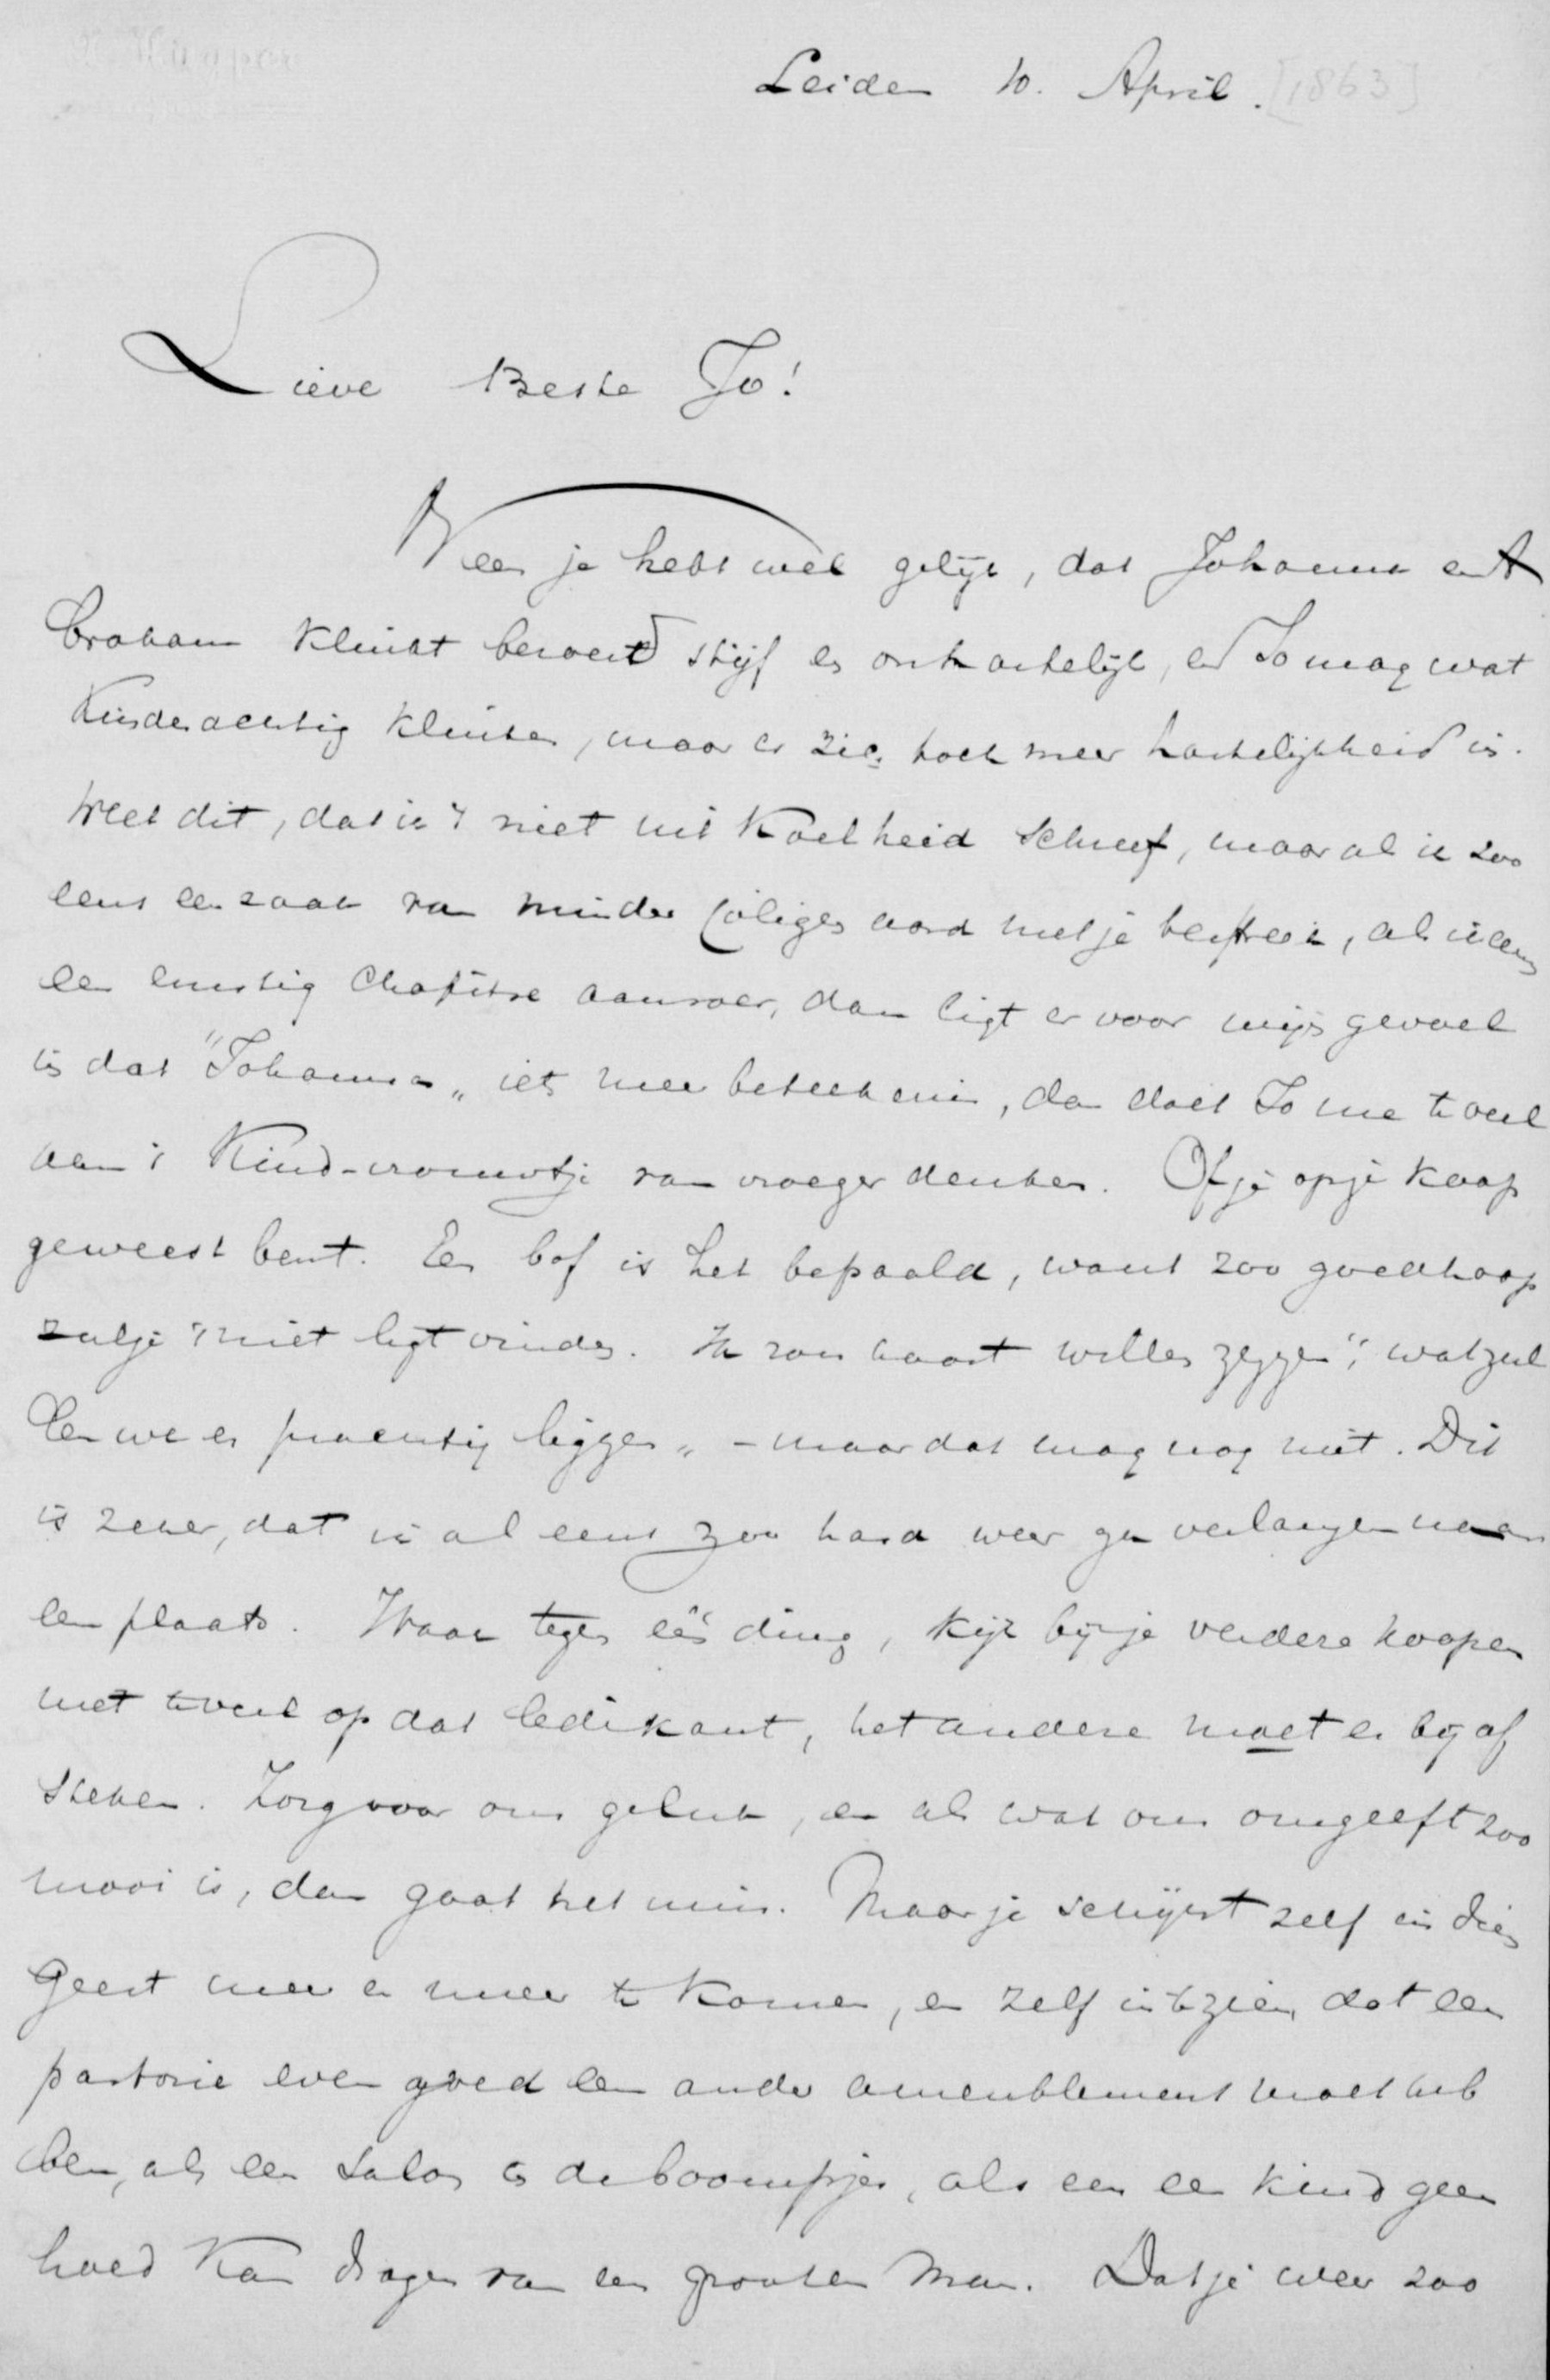 Leiden 10. April. [1863]
Lieve Beste Jo!
Neen je hebt wel gelijk, dat Johanna en A
braham klinkt beroerd stijf en onhartelijk, en Jo mag wat
kinderachtig klinken, maar er zie, toch meer hartelijkheid in.
Weet dit, dat ik 't niet uit koelheid schreef, maar als ik zoo
eens een zaak van minder joligen aard met je bespreek, als ik eens
een ernstig chapitre aanroer, dan ligt er voor mijn gevoel
in dat "Johanna" iets meer beteekenis, dan doet Jo me te veel
aan 't Kind-vrouwtje van vroeger denken. Of je op je koop
geweest bent. Een bof is het bepaald, want zoo goedkoop
zul je 't niet ligt vinden. Ik zou haast willen zeggen: "wat zul
len we er prachtig liggen" - maar dat mag nog niet. Dit
is zeker, dat ik al eens zoo hard weer ga verlangen naar
een plaats. Waak tegen één ding, kijk bij je verdere koopen
niet te veel op dat ledikant, het andere moet er bij af
steken. Zorg voor ons geluk, en als wat ons omgeeft zoo
mooi is, dan gaat het mis. Maar je schijnt zelf in dien
geest meer en meer te komen, en zelf in te zien, dat een
pastorie even goed een ander ameublement moet heb
ben, als een salon in de boompjes, als een kind geen
hoed kan dragen van een grooten man. Dat je weer zoo